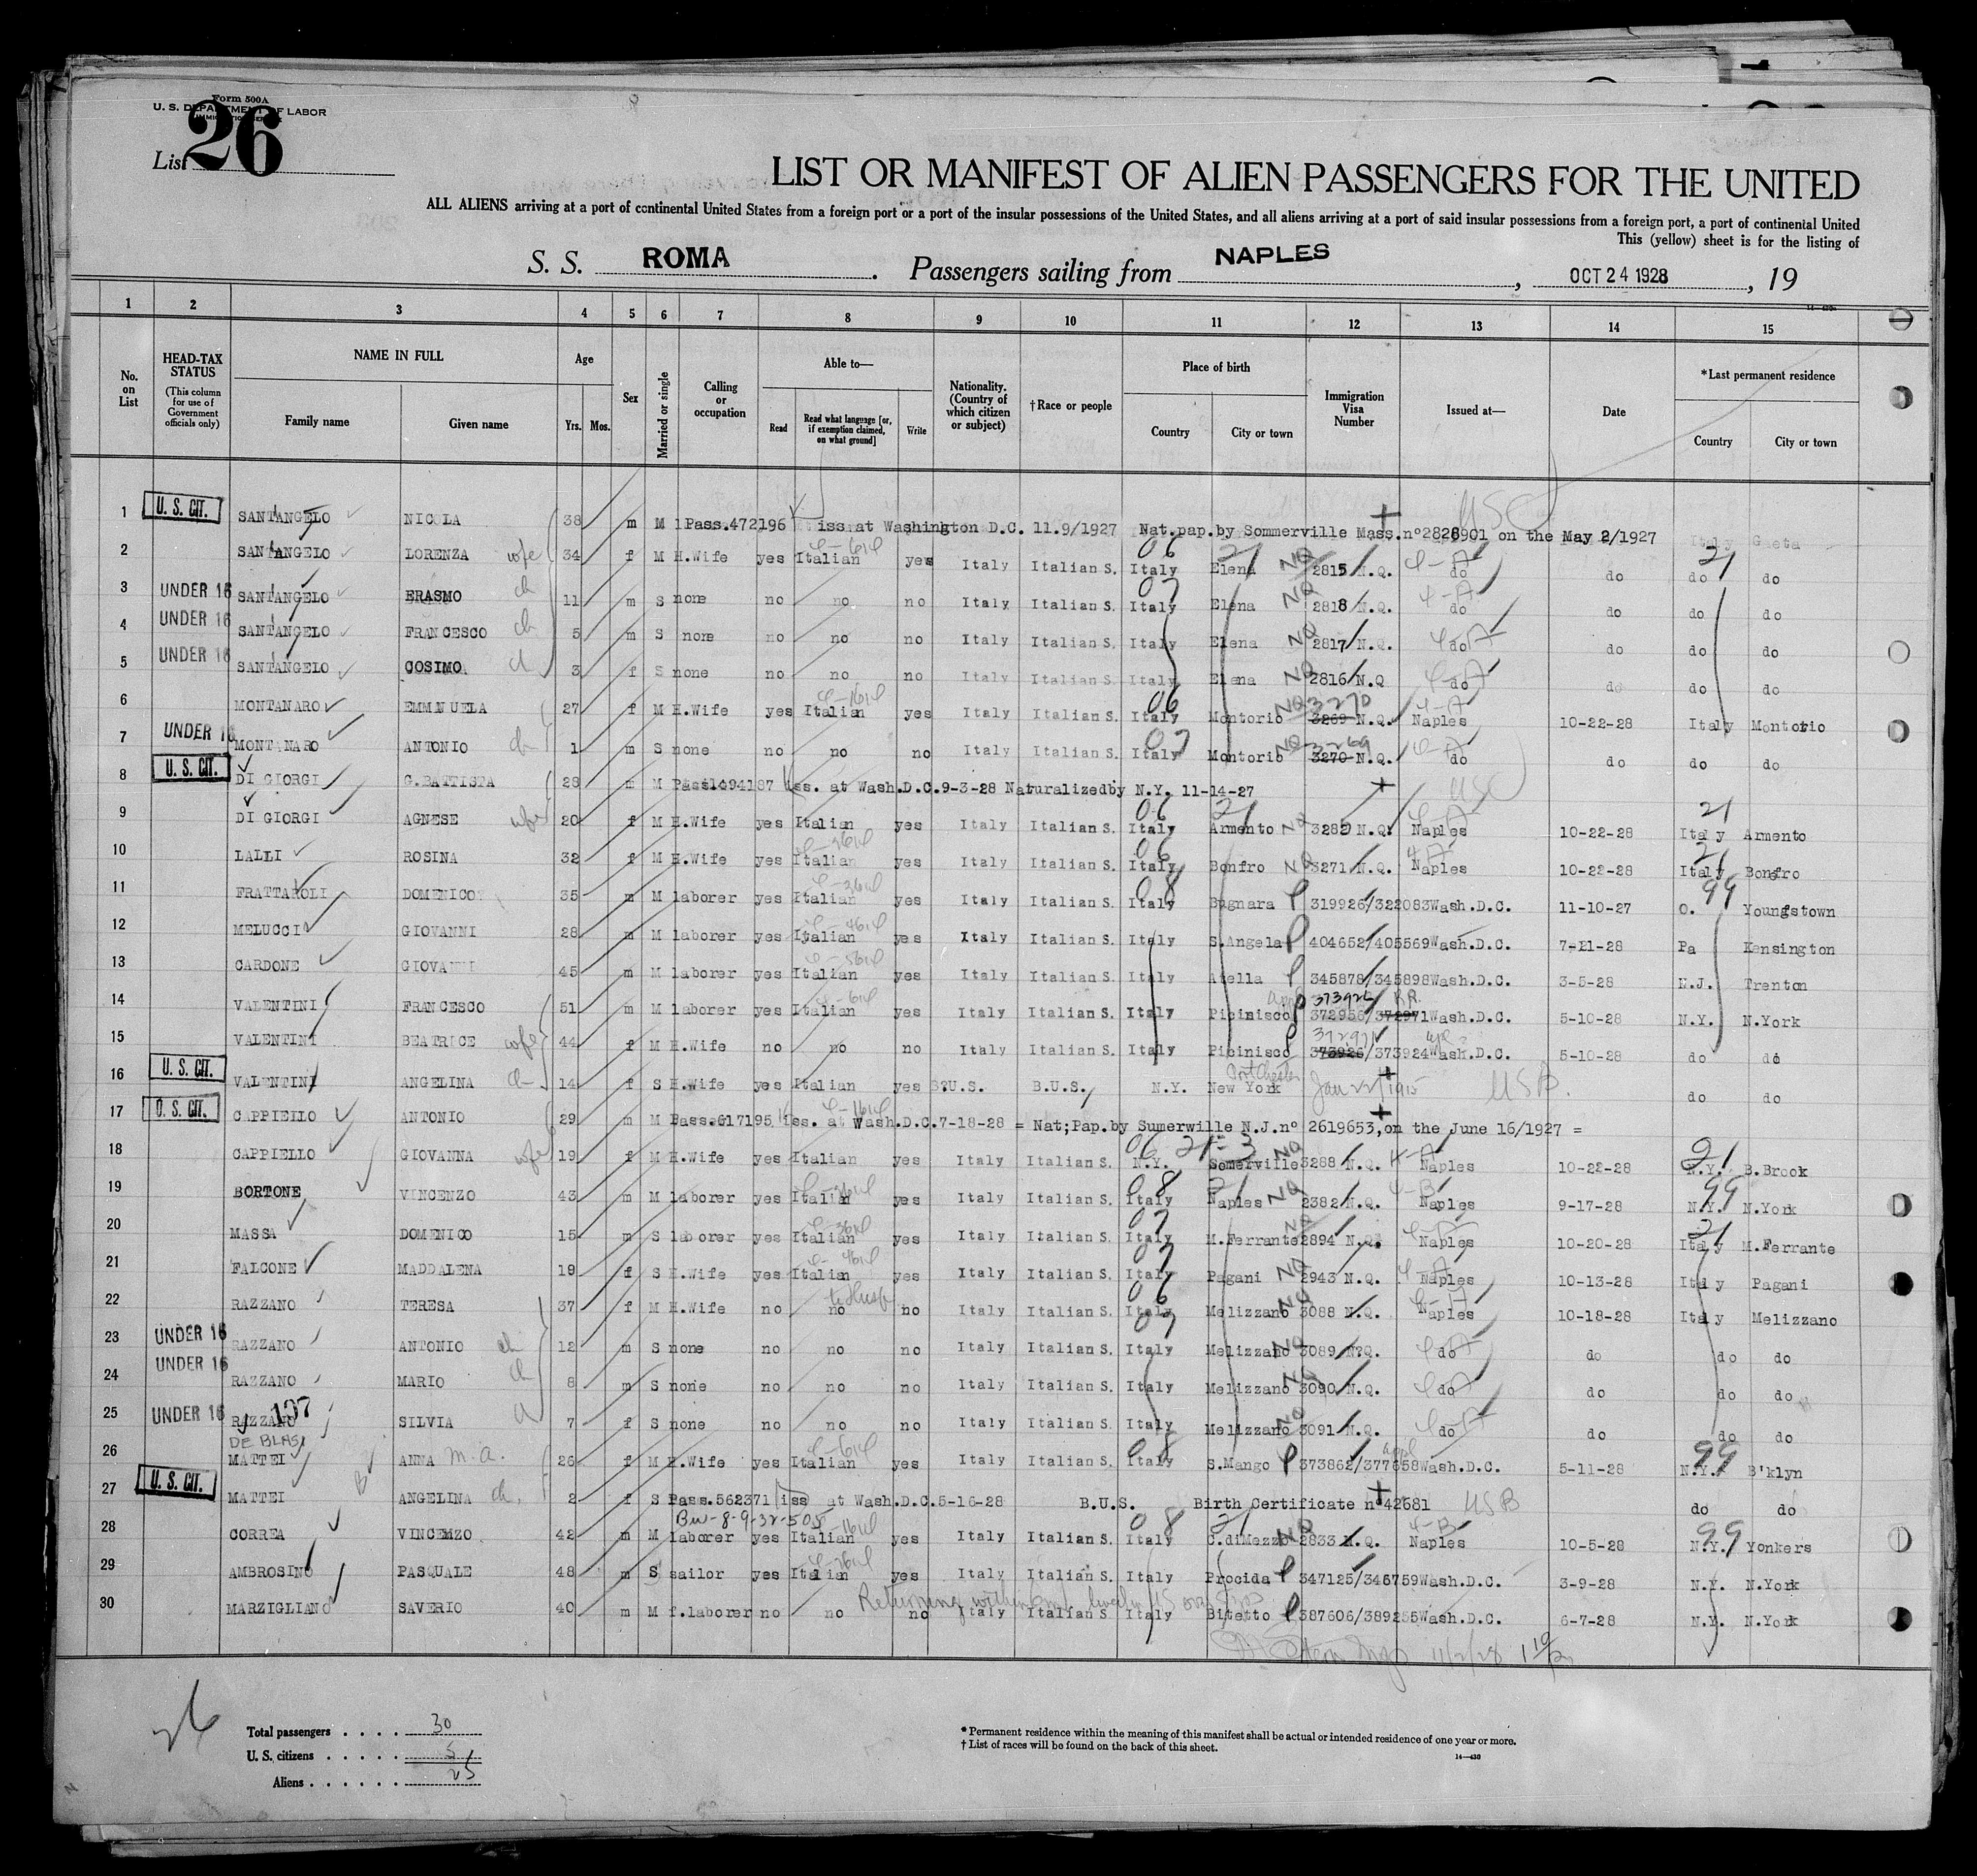 Form 500A
U. S. DEPARTMENT OF LABOR
List 26
LIST OR MANIFEST OF ALIEN PASSENGERS FOR THE UNITED
ALL ALIENS arriving at a port of continental United States from a foreign port or a port of the insular possessions of the United States, and all aliens arriving at a port of said insular possessions from a foreign port, a port of continental United
This (yellow) sheet is for the listing of
S. S. ROMA. Passengers sailing from NAPLES, OCT 24 1928, 19
1 2 3 4 5 6 7 8 9 10 11 12 13 14 15
No. on List
HEAD-TAX STATUS (This column for use of Government officials only)
NAME IN FULL
Family name Given name
Age
Yrs. Mos.
Sex
Married or single
Calling or occupation
Able to—
Read Read what language [or, if exemption claimed, on what ground] Write
Nationality. (Country of which citizen or subject)
†Race or people
Place of birth
Country City or town
Immigration Visa Number
Issued at—
Date
*Last permanent residence
Country City or town
1 U. S. CIT. SANTANGELO NICOLA 38 m M Pass.472196 iss at Washington D.C. 11.9/1927 Nat.pap.by Sommerville Mass.n°2828901 on the May 2/1927 USC
2 SANTANGELO LORENZA wfe 34 f M H.Wife yes Italian yes Italy Italian S. Italy Elena NQ 2815 N.Q. do do do do
3 UNDER 16 SANTANGELO ERASMO ch 11 m S none no no no Italy Italian S. Italy Elena NQ 2818 N.Q. do do do do
4 UNDER 16 SANTANGELO FRANCESCO ch 5 m S none no no no Italy Italian S. Italy Elena NQ 2817 N.Q. do do do do
5 UNDER 16 SANTANGELO COSIMO ch 3 f S none no no no Italy Italian S. Italy Elena NQ 2816 N.Q do do do do
6 MONTANARO EMMNUELA 27 f M H.Wife yes Italian yes Italy Italian S. Italy Montorio NQ 3270 3269 N.Q. Naples 10-22-28 Italy Montorio
7 UNDER 16 MONTANARO ANTONIO ch 1 m S none no no no Italy Italian S. Italy Montorio NQ 3269 3270 N.Q. do do do do
8 U. S. CIT. DI GIORGI G.BATTISTA 28 m M Pass.494187 iss. at Wash.D.C.9-3-28 Naturalizedby N.Y. 11-14-27 USC
9 DI GIORGI AGNESE wfe 20 f M H.Wife yes Italian yes Italy Italian S. Italy Armento NQ 3282 N.Q. Naples 10-22-28 Italy Armento
10 LALLI ROSINA 32 f M H.Wife yes Italian yes Italy Italian S. Italy Bonfro NQ 3271 N.Q. Naples 10-22-28 Italy Bonefro
11 FRATTAROLI DOMENICO 35 m M laborer yes Italian yes Italy Italian S. Italy Bugnara 319926/322083 Wash.D.C. 11-10-27 O. Youngstown
12 MELUCCI GIOVANNI 28 m M laborer yes Italian yes Italy Italian S. Italy S.Angela 404652/405569 Wash.D.C. 7-21-28 Pa Kensington
13 CARDONE GIOVANNI 45 m M laborer yes Italian yes Italy Italian S. Italy Atella 345878/345898 Wash.D.C. 3-5-28 N.J. Trenton
14 VALENTINI FRANCESCO 51 m M laborer yes Italian yes Italy Italian S. Italy Picinisco 372956/372971 Wash.D.C. 5-10-28 N.Y. N.York
15 VALENTINI BEATRICE wfe 44 f M H.Wife no no no Italy Italian S. Italy Picinisco 373926/373924 Wash.D.C. 5-10-28 do do
16 U. S. CIT. VALENTINI ANGELINA ch 14 f S H.Wife yes Italian yes B.U.S. B.U.S. N.Y. New York Port Chester Jan 22 1915 USB. do do
17 U. S. CIT. CAPPIELLO ANTONIO 29 m M Pass.617195 iss. at Wash.D.C.7-18-28 = Nat;Pap.by Sumerwille N.J.n° 2619653,on the June 16/1927 =
18 CAPPIELLO GIOVANNA wfe 19 f M H.Wife yes Italian yes Italy Italian S. N.Y. Somerville NQ 3288 N.Q. Naples 10-22-28 N.Y. B.Brook
19 BORTONE VINCENZO 43 m M laborer yes Italian yes Italy Italian S. Italy Naples NQ 2382 N.Q. Naples 9-17-28 N.Y. N.York
20 MASSA DOMENICO 15 m S laborer yes Italian yes Italy Italian S. Italy M.Ferrante NQ 2894 N.Q. Naples 10-20-28 Italy M.Ferrante
21 FALCONE MADDALENA 19 f S H.Wife yes Italian yes Italy Italian S. Italy Pagani NQ 2943 N.Q. Naples 10-13-28 Italy Pagani
22 RAZZANO TERESA 37 f M H.Wife no no to Husb no Italy Italian S. Italy Melizzano NQ 3088 N.Q. Naples 10-18-28 Italy Melizzano
23 UNDER 16 RAZZANO ANTONIO ch 12 m S none no no no Italy Italian S. Italy Melizzano NQ 3089 N.Q. do do do do
24 UNDER 16 RAZZANO MARIO ch 8 m S none no no no Italy Italian S. Italy Melizzano NQ 3090 N.Q. do do do do
25 UNDER 16 RAZZANO 107 SILVIA 7 f S none no no no Italy Italian S. Italy Melizzano NQ 3091 N.Q. do do do do
DE BLASI
26 MATTEI ANNA M.A. 26 f M H.Wife yes Italian yes Italy Italian S. Italy S.Mango 373862/377658 Wash.D.C. 5-11-28 N.Y. B'klyn
27 U. S. CIT. MATTEI ANGELINA ch. 2 f S Pass.562371 iss at Wash.D.C.5-16-28 B.U.S. Birth Certificate n°42681 USB do do
28 CORREA VINCENZO 42 m M laborer yes Italian yes Italy Italian S. Italy C.diMezzo NQ 2833 N.Q. Naples 10-5-28 N.Y. Yonkers
29 AMBROSINO PASQUALE 48 m S sailor yes Italian yes Italy Italian S. Italy Procida 347125/346759 Wash.D.C. 3-9-28 N.Y. N.York
30 MARZIGLIANO SAVERIO 40 m M f.laborer no no no Italy Italian S. Italy Bitetto 387606/389255 Wash.D.C. 6-7-28 N.Y. N.York
11/2/28
26
Total passengers . . . . 30
U. S. citizens . . . . . 5
Aliens . . . . . . 25
* Permanent residence within the meaning of this manifest shall be actual or intended residence of one year or more.
† List of races will be found on the back of this sheet.
14—430